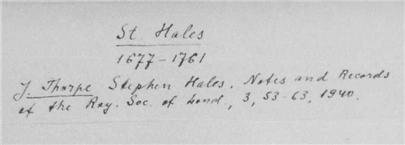 St. Hales
1677-1761
J. Thorpe Stephen Hales. Notes and Records
of the Roy. Soc. of Lond., 3, 53-63, 1940.